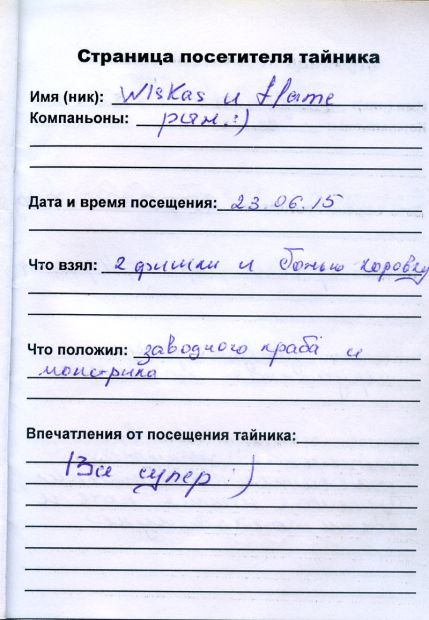 Страница посетителя тайника
Имя (ник): Wiskas и flame
Компаньоны: :)
Дата и время посещения: 23.06.15
Что взял: 2 фишки и божью коровку
Что положил: заводного краба и
монстрика
Впечатления от посещения тайника:
Все супер :)